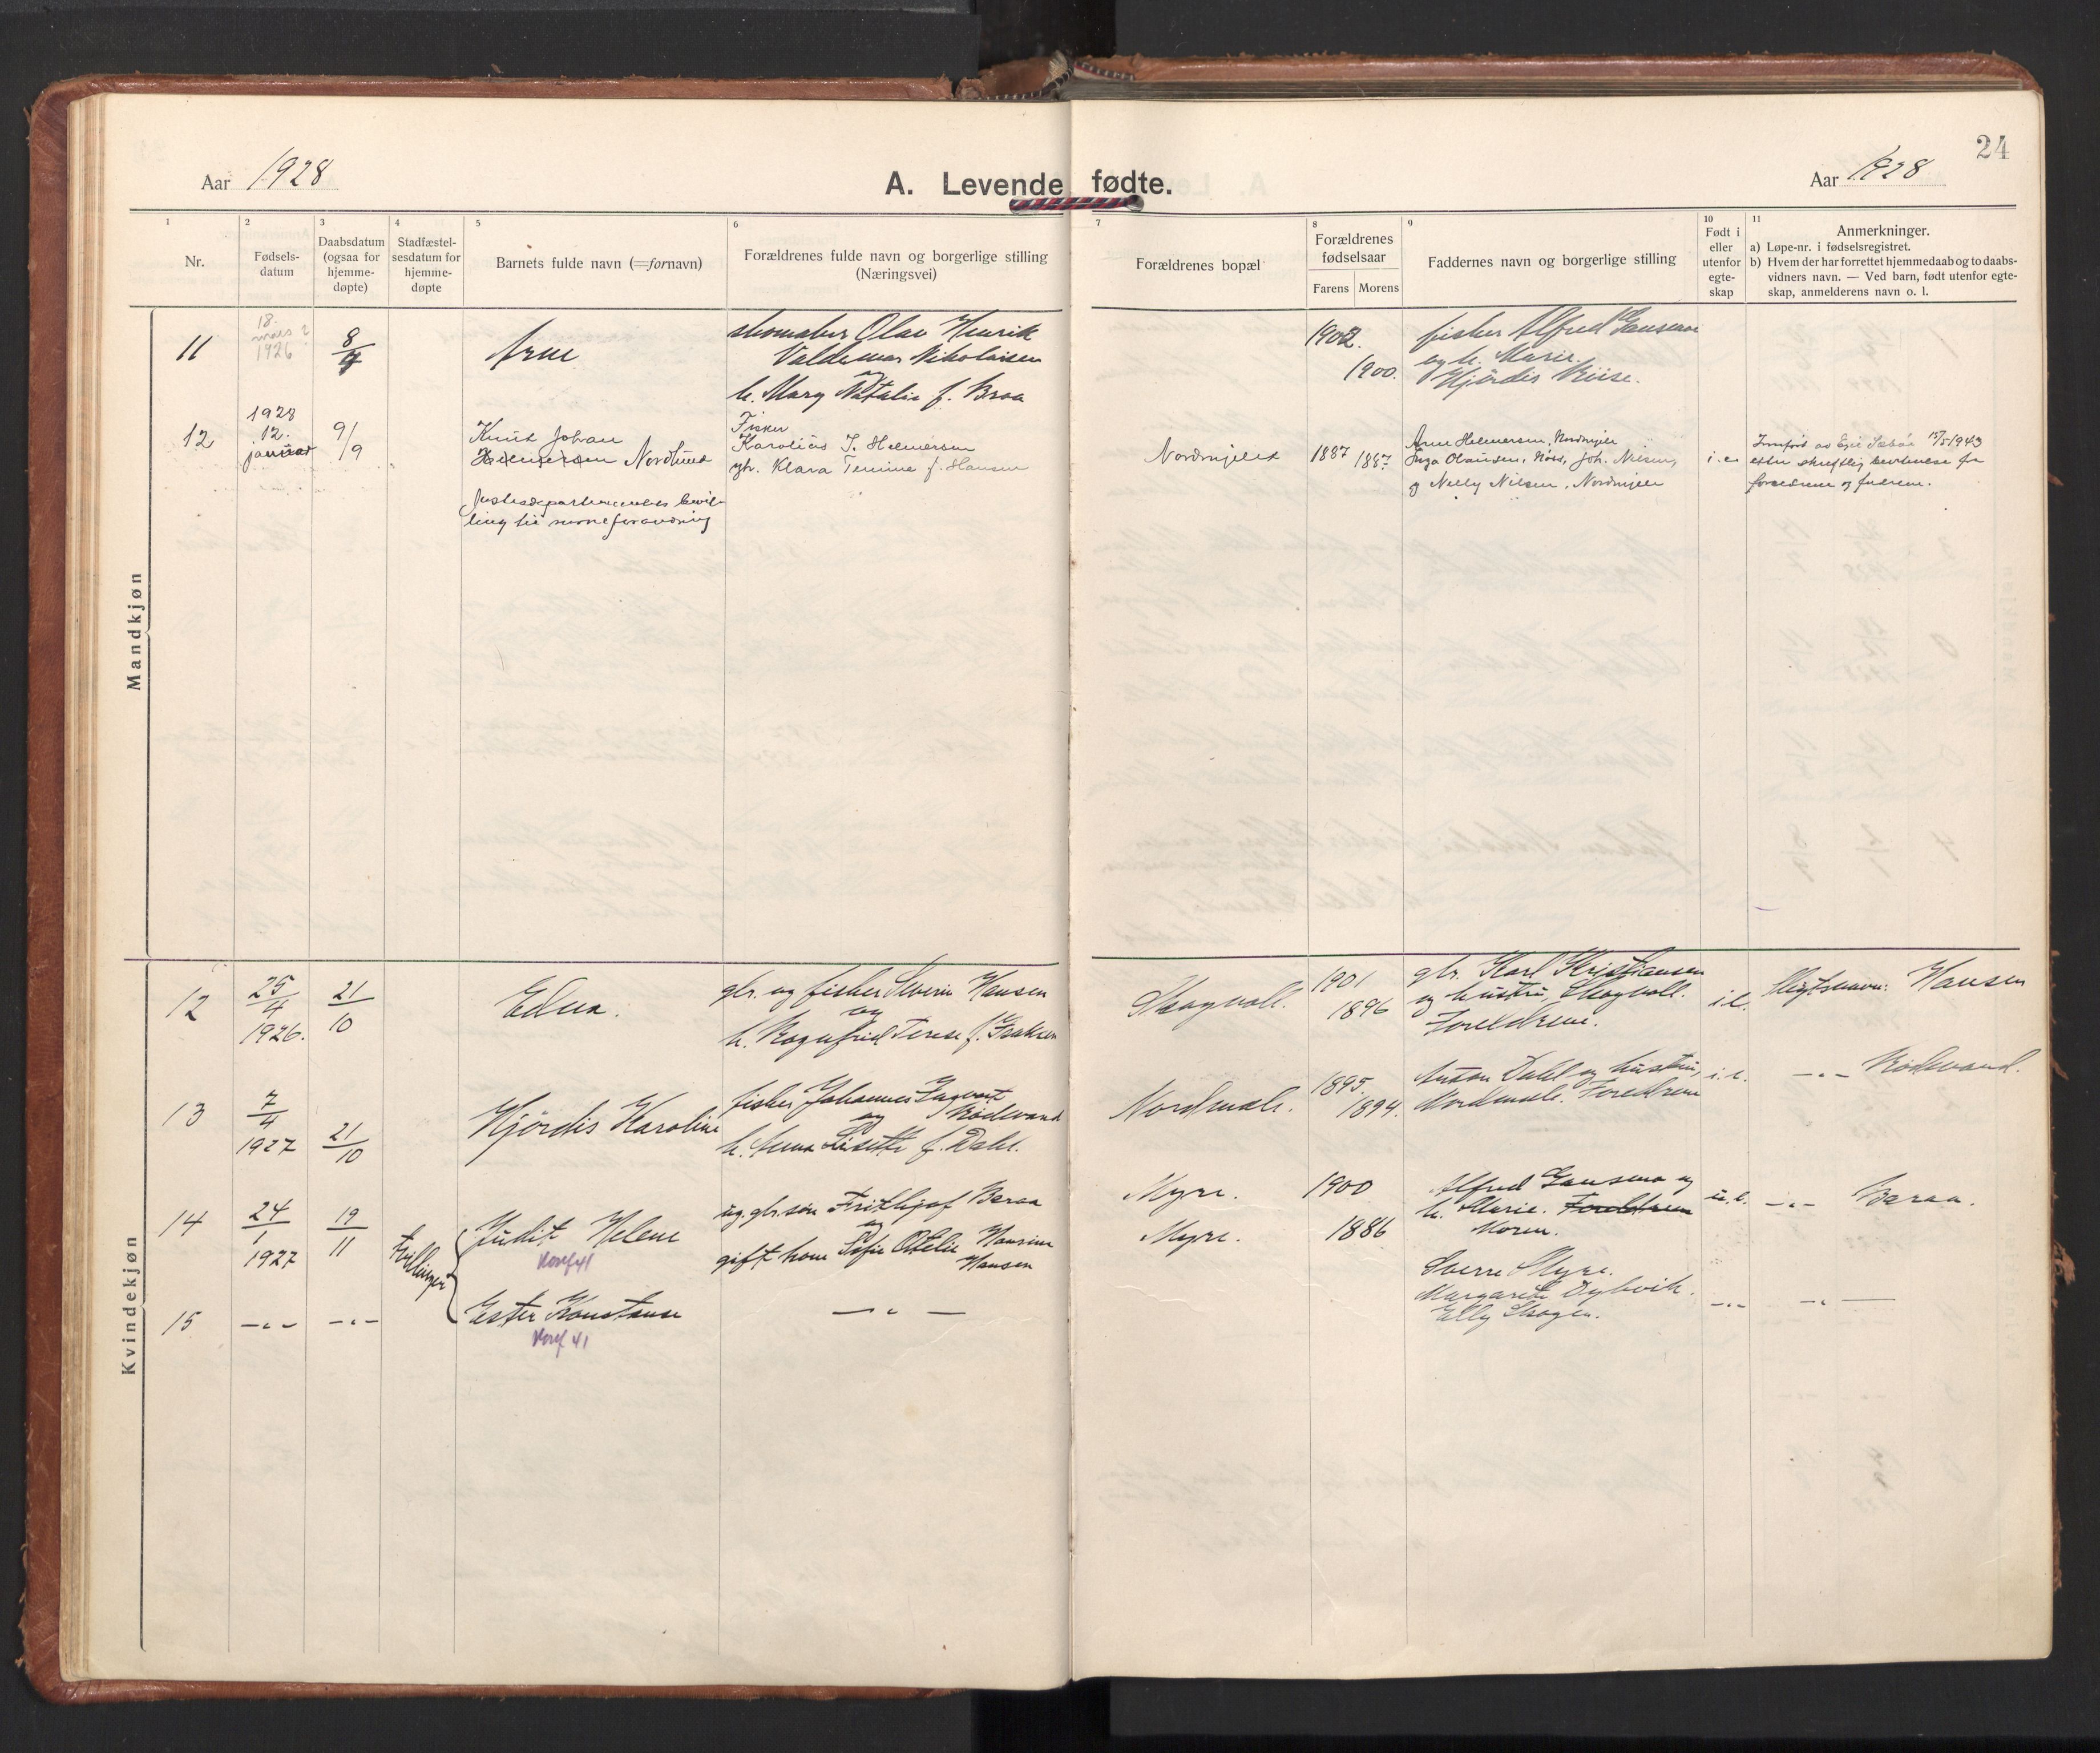 24
Aar 1928
A. Levende fødte.
Aar 1928
1
Nr.
2
Fødsels-
datum
3
Daabsdatum
(ogsaa for
hjemme-
døpte)
4
Stadfæstel-
sesdatum for
hjemme-
døpte
5
Barnets fulde navn (=fornavn)
6
Forældrenes fulde navn og borgerlige stilling
(Næringsvei)
7
Forældrenes bopæl
8
Forældrenes
fødselsaar
Farens Morens
9
Faddernes navn og borgerlige stilling
10
Født i
eller
utenfor
egte-
skap
11
Anmerkninger.
a) Løpe-nr. i fødselsregistret.
b) Hvem der har forrettet hjemmedaab og to daabs-
vidners navn. — Ved barn, født utenfor egte-
skap, anmelderens navn o. l.
Mandkjøn
11
18.
mars ?
1926
8/7
Arne
skomaker Olav Henrik
Valdemar Nikolaisen
og
h. Mary Natalie f. Braa
1902.
1900.
fisker Alfred
og h. Marie.
Hjördis Riise.
12
1928
12.
januar
9/9
Knut Johan
Helmersen Nordlund
Justisdepartementets bevil-
ling til navneforandring
Fisker
Karolius J. Helmersen
og h. Klara Temine f. Hansen
Nordmjelet
1887 1887
Arne Helmersen, Nordmjele
Inga Olausen, Nøss, Joh. Nilsen,
og Nelly Nilsen, Nordmjele
i.e.
Innført av 15/5 1943
etter skriftlig bevitnelse fra
foreldrene og fadrene.
Kvindekjøn
12
25/4
1926.
21/10
Edna.
gbr. og fisker Severin Hansen
og
h. Ragnfrid Terese f. Isaksen
Skogvoll.
1901
1896
gbr. Karl Kristiansen
og hustru, Skogvoll.
Foreldrene.
i.e.
Slegtsnavn: Hansen
13
7/4
1927
21/10
Hjördis Karoline
fisker Johannes Ingvart
og Rødevand
h. Anna Lisette f. Dahl.
Nordmele.
1895.
1894.
Anton Dahl og hustru,
Nordmele. Foreldrene
i.e.
-"- Rødevand.
14
24/1
1927
19/11
tvillinger
Judit Helene
Konf 41
ug. gbr.søn Frithjof Beraa
og
gift kone Sofie Otelie Hansine
Hansen
Myre.
Myre.
1900
1886
Alfred og
h. Marie. Foreldrene
Moren.
u.e.
-"- Beraa.
15
-"-
-"-
Ester Konstanse
Konf 41
-"-
Sverre Myre.
Margarete Dybvik.
Elly Skogen.
-"-
-"-